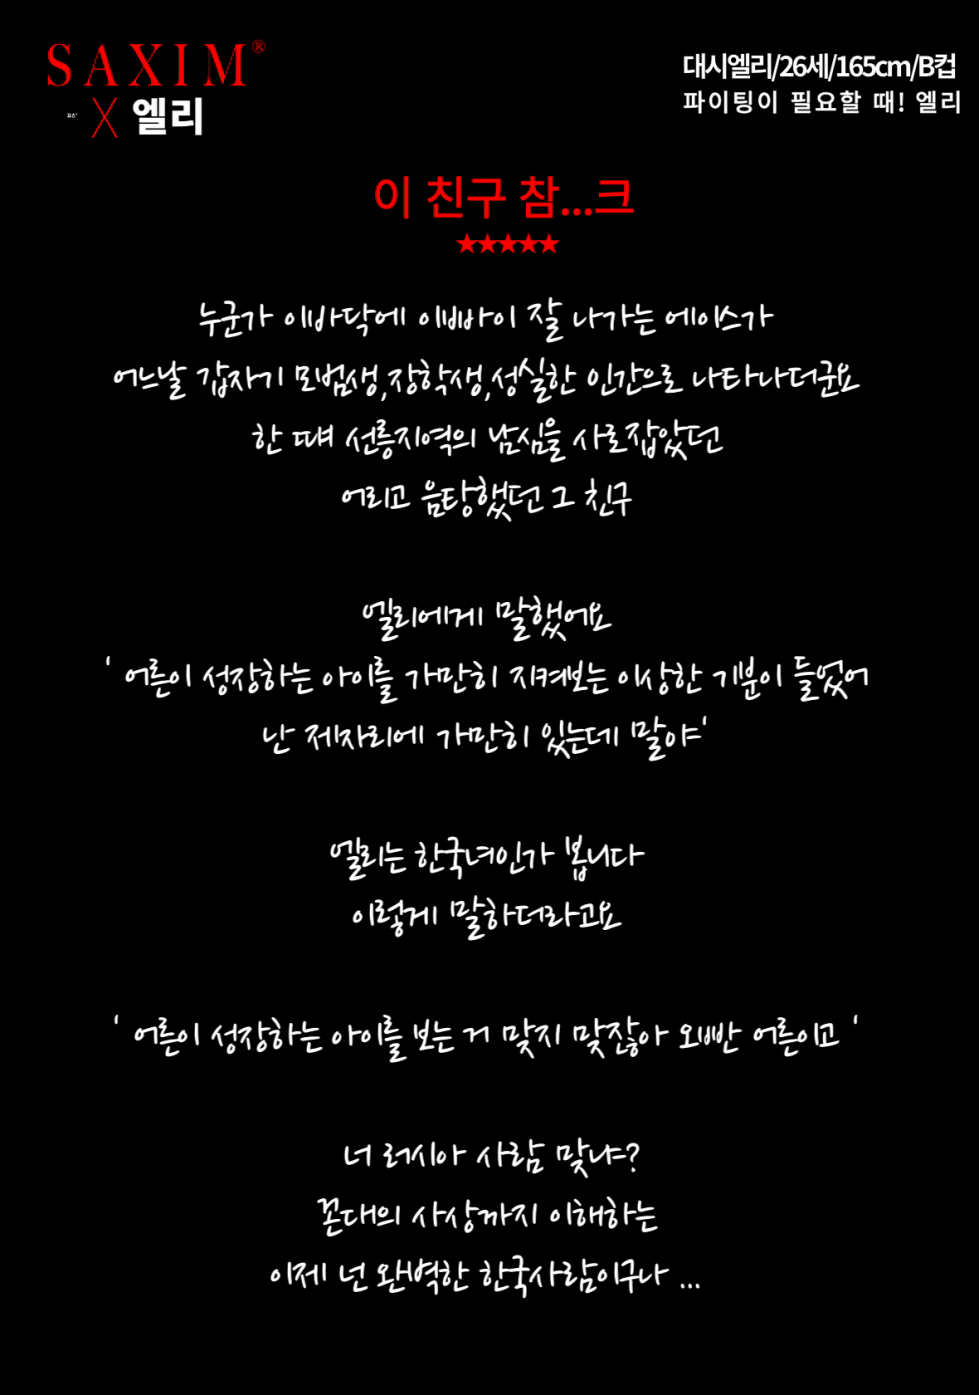 SAXIM®
X 엘리
대시엘리/26세/165cm/B컵
파이팅이 필요할 때! 엘리
이 친구 참...크
★★★★★
누군가 이바닥에 이빠이 잘 나가는 에이스가
어느날 갑자기 모범생,장학생,성실한 인간으로 나타나더군요
한 때 선릉지역의 남심을 사로잡았던
어리고 음탕했던 그 친구
엘리에게 말했어요
' 어른이 성장하는 아이를 가만히 지켜보는 이상한 기분이 들었어
난 제자리에 가만히 있는데 말야'
엘리는 한국녀인가 봅니다
이렇게 말하더라고요
' 어른이 성장하는 아이를 보는 거 맞지 맞잖아 오빤 어른이고 '
너 러시아 사람 맞냐?
꼰대의 사상까지 이해하는
이제 넌 완벽한 한국사람이구나 ...